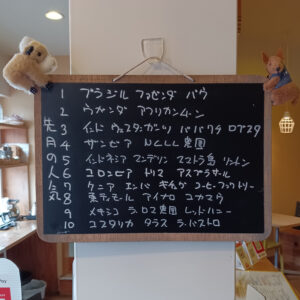 先月の人気
1 ブラジル ファゼンダ バウ
2 ウガンダ アフリカンムーン
3 インド ウェスタンガーツ ババブダ ロブスタ
4 ザンビア NCCL 農園
5 インドネシア マンデリン スマトラ島 リントン
6 コロンビア トリマ アスプラサール
7 ケニア エンバ キチュゲ コーヒーファクトリー
8 東ティモール アイナロ コカマウ
9 メキシコ ラ ロマ農園 レッドハニー
10 コスタリカ タラス ラ・パストラ